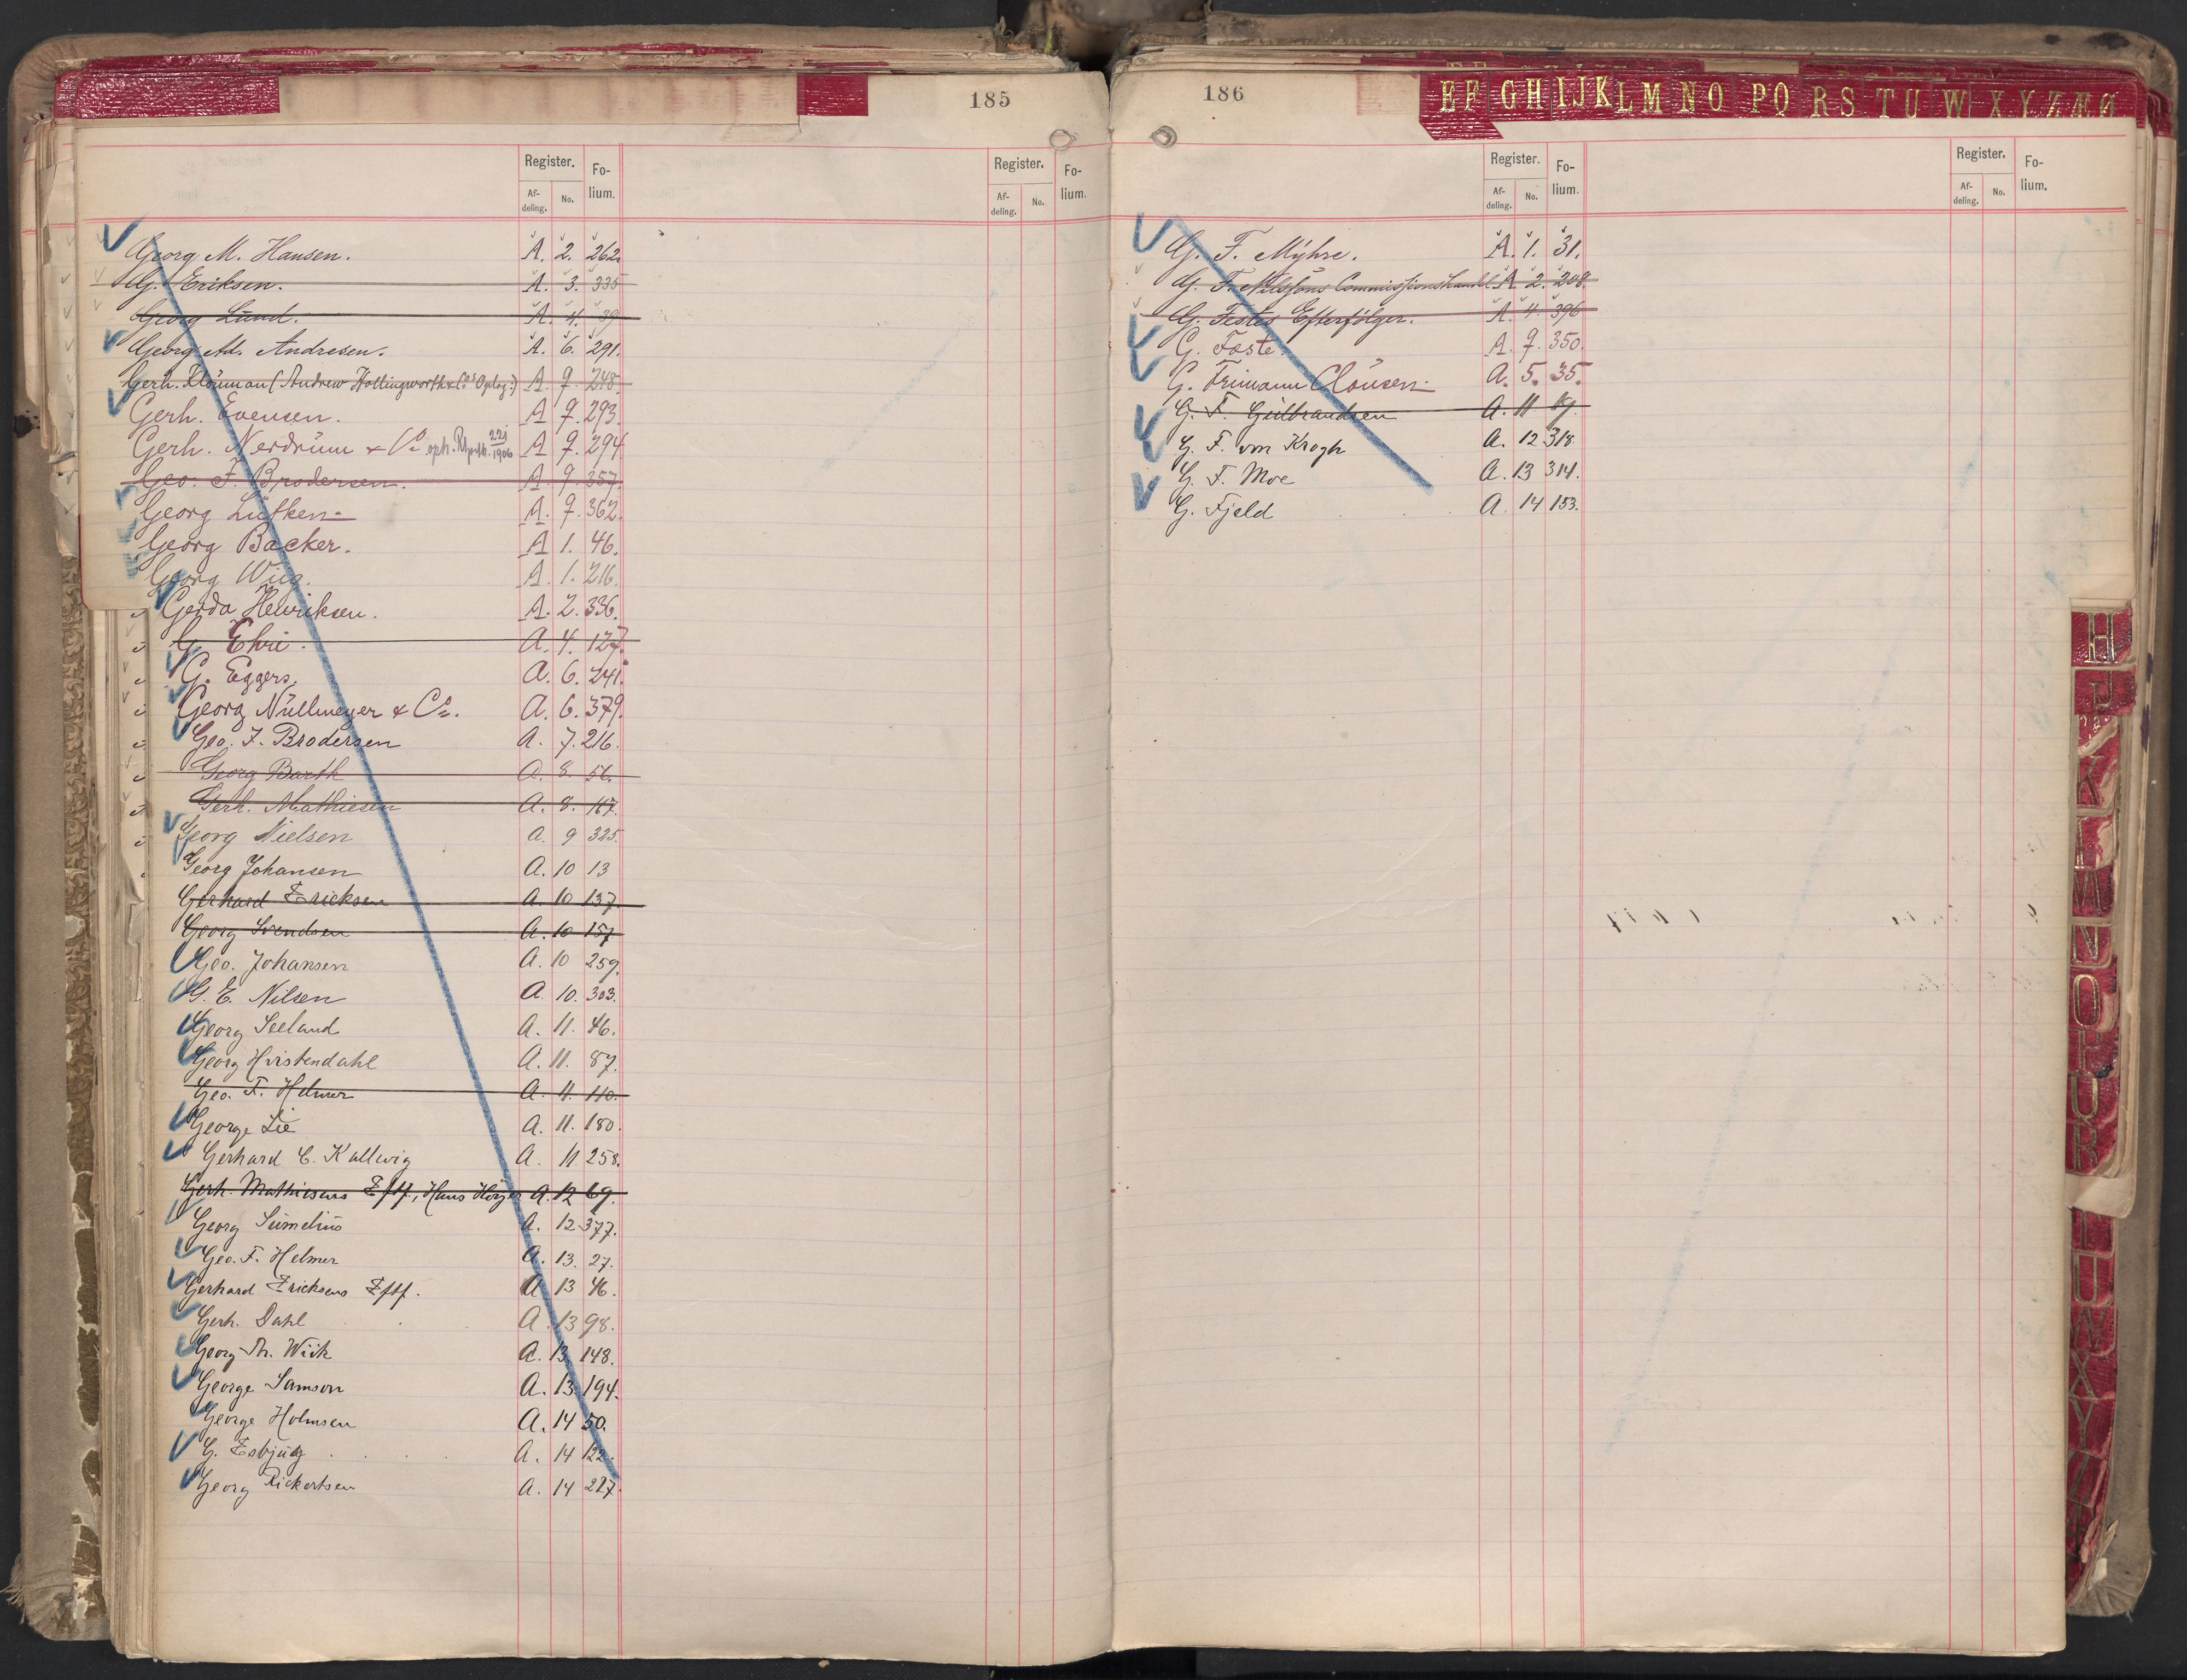 185
Register. Fo-
lium.
Af-
deling. No.
Register. Fo-
lium.
Af-
deling. No.
Georg M. Hansen. A. 2. 262.
G. Eriksen. A. 3. 335
Georg Lund. A. 4. 39
Georg Ad. Andresen. A. 6. 291.
Gerh. Klouman (Andrew Hollingworth & Co's Oplag:) A. 7. 248.
Gerh. Evensen. A 7. 293.
Gerh. Nerdrum & Co A 7. 294.
Geo. F. Brodersen. A. 7. 357.
Georg Lütken A. 7. 362.
Georg Backer. A 1. 46.
Georg Wiig. A. 1. 216.
Gerda Henriksen. A. 2. 336.
G. Ehri. A. 4. 127.
G. Eggers. A. 6. 241.
Georg Nüllmeyer & Co. A. 6. 379.
Geo. F. Brodersen A. 7. 216.
Georg Barth A. 8. 56.
Gerh. Mathiesen A. 8. 167.
Georg Nielsen A. 9 325.
Georg Johansen A. 10 13
Gerhard Ericksen A. 10 137.
Georg Svendsen A. 10 157
Geo. Johansen A. 10 259.
G. E. Nilsen A. 10. 303.
Georg Seeland A. 11. 46.
Georg Hvistendahl A. 11. 87.
Geo. F. Helmer A. 11. 110.
George Lie A. 11. 180.
Gerhard C. Kallevig A. 11 258.
Gerh. Mathiesens Eftf., Hans Höyer A. 12 69.
Georg Sumelius A. 12 377.
Geo. F. Helmer A. 13. 27.
Gerhard Ericksens Eftf. A 13 46.
Gerh. Dahl A. 13 98.
Georg Th. Wiik A. 13. 148.
George Samson A. 13. 194.
George Holmsen A. 14 50.
G. Esbjug A. 14 122.
Georg Rickertsen A. 14 227.
186
EF GH IJ KL M NO PQ RS TU W XYZÆØ
Register. Fo-
lium.
Af-
deling. No.
Register. Fo-
lium.
Af-
deling. No.
G. F. Myhre. A. 1. 31.
G. F. Nilssons Commissionshandel A 2. 208.
G. Festes Efterfölger. A. 4. 396
G. Foste. A. 7. 350.
G. Frimann Clausen A. 5. 35.
G. F. Gulbrandsen A. 11 19.
G. F. von Krogh A. 12 318.
G. F. Moe A. 13 314.
G. Fjeld A. 14 153.
H
J
K
L
M
N
O
P
U
R
T
U
W
X
Y
Z